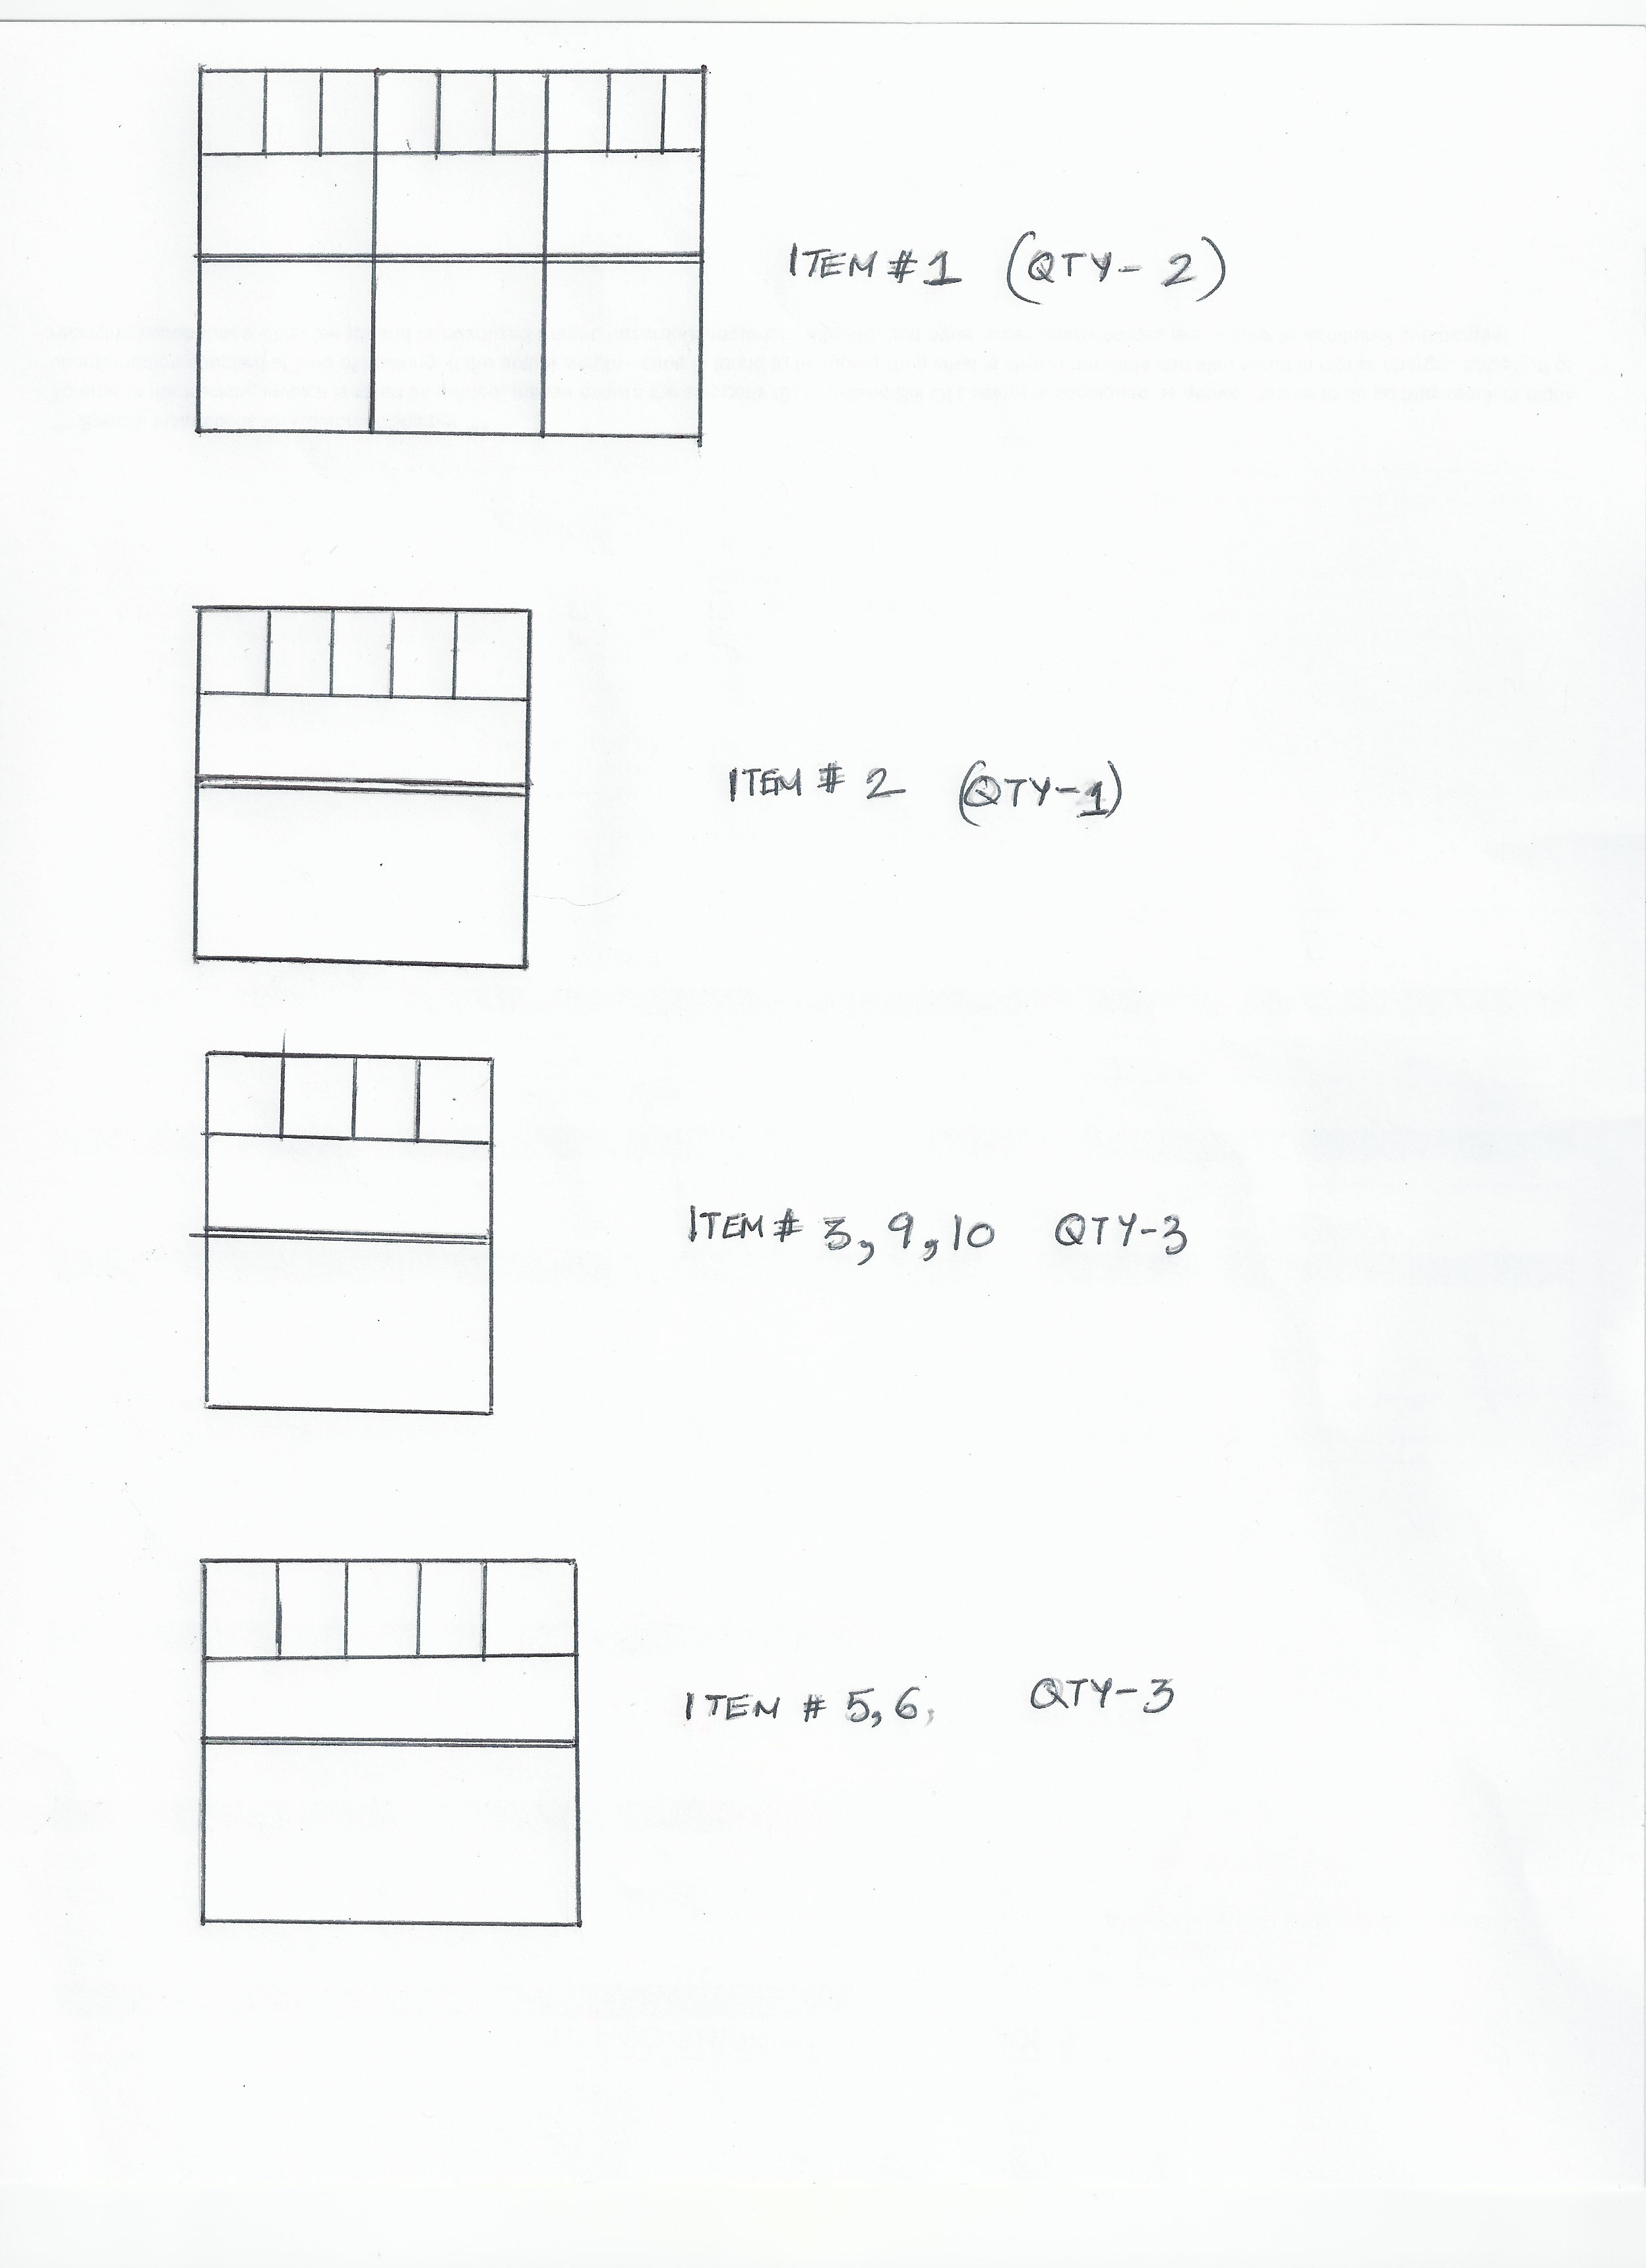 ITEM # 1 (QTY - 2)
ITEM # 2 (QTY-1)
ITEM # 3, 9, 10 QTY-3
ITEM # 5, 6, QTY-3